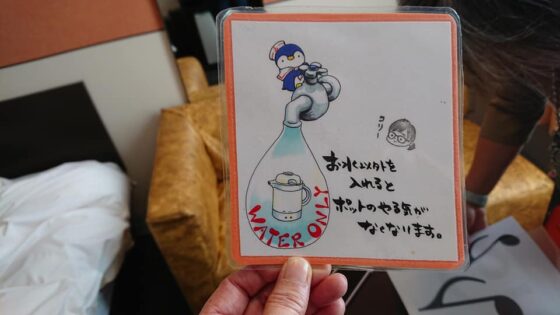 コリー
お水以外を
入れると
ポットのやる気が
なくなります。
WATER ONLY